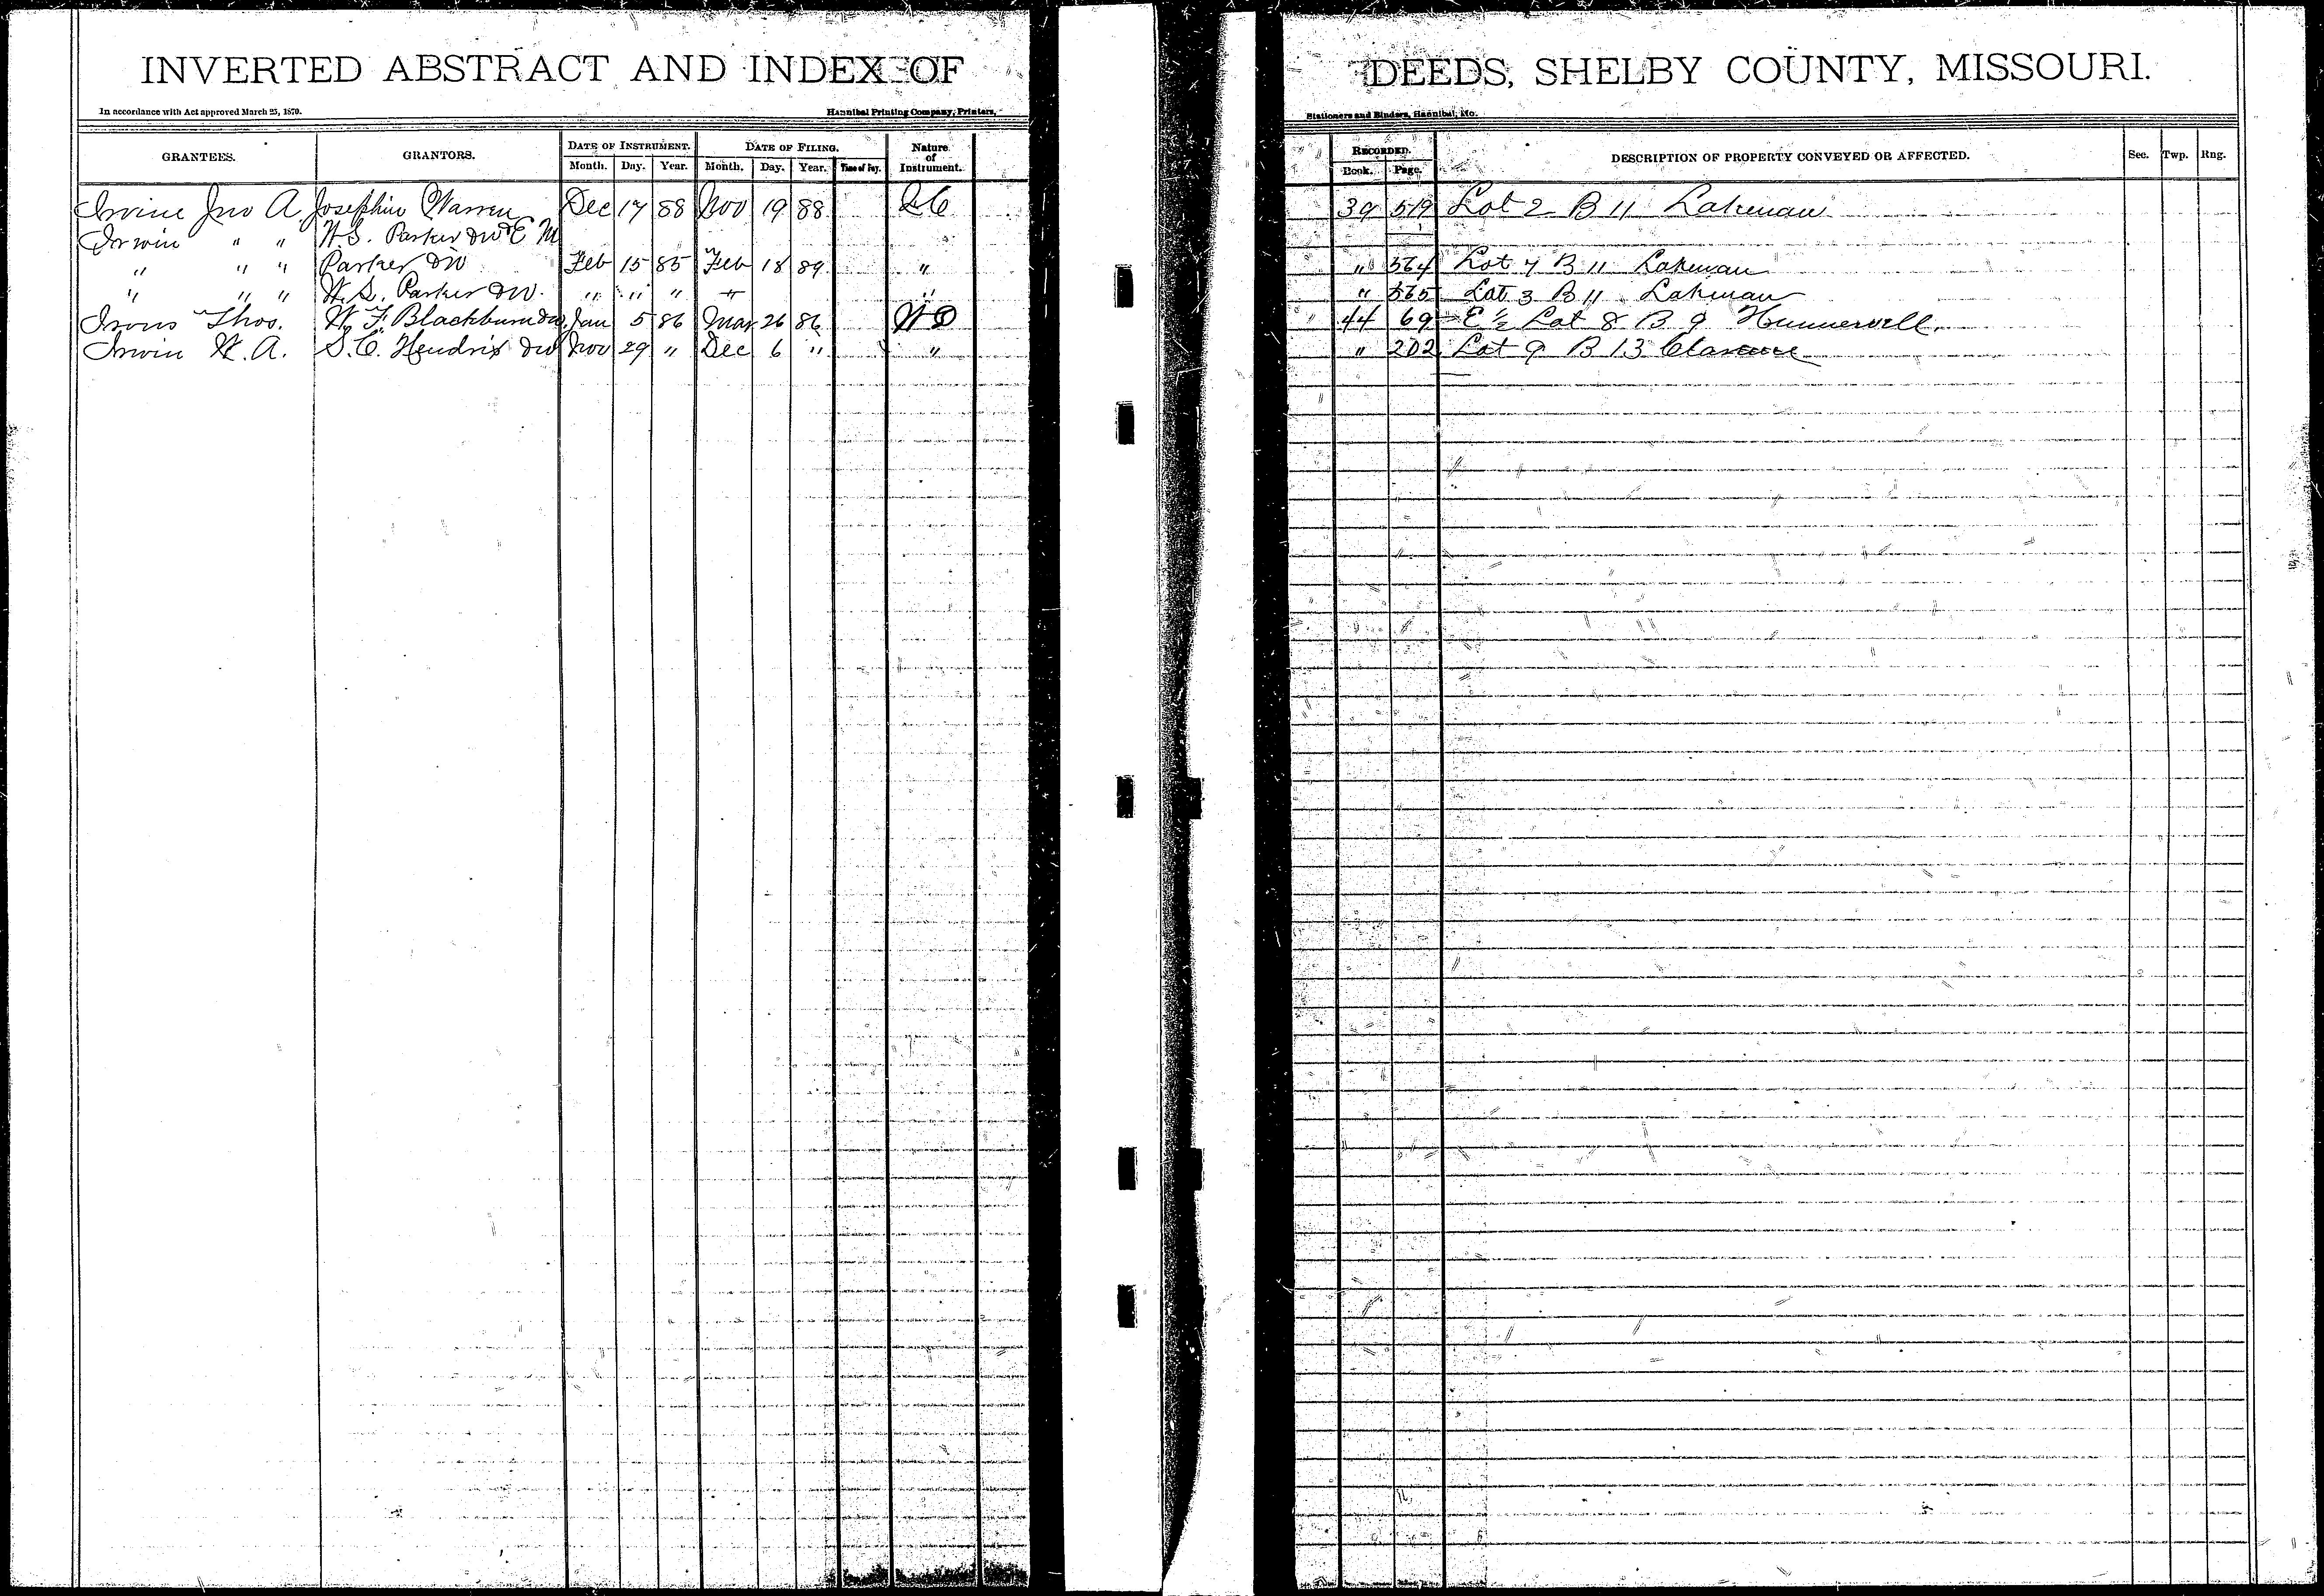 INVERTED ABSTRACT AND INDEX OF DEEDS, SHELBY COUNTY, MISSOURI.
In accordance with Act approved March 25, 1870. Hannibal Printing Company, Printers, Stationers and Binders, Hannibal, Mo.
GRANTEES. GRANTORS. DATE OF INSTRUMENT. DATE OF FILING. Nature of Instrument. RECORDED. DESCRIPTION OF PROPERTY CONVEYED OR AFFECTED. Sec. Twp. Rng.
Month. Day. Year. Month. Day. Year. Time of Day. Book. Page.
Irvine Jno A. Josephine Warren Dec 17 88 Nov 19 88 39 519 Lot 2 B 11 Lakenan
Irwin " " W.S. Parker & W E M
" " " Parker & W Feb 15 85 Feb 18 89 " " 564 Lot 4 B 11 Lakenan
" " " W.S. Parker & W. " " " " " " 565 Lot 3 B 11 Lakenan
Irons Thos. W. F. Blackburn & W Jan 5 86 Mar 26 86 W D 44 69 E ½ Lot 8 B 9 Hunnewell
Irwin W. A. S. C. Hendrix & W Nov 29 " Dec 6 " " " 202 Lot 9 B 13 Clarence